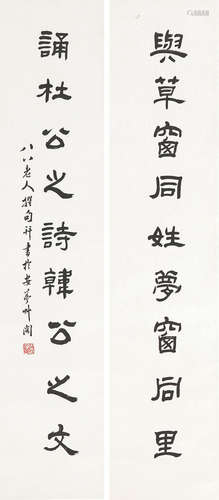 與草窗同姓夢窗同里
誦杜公之詩韓公之文
八八老人撰句并書於安夢竹閣